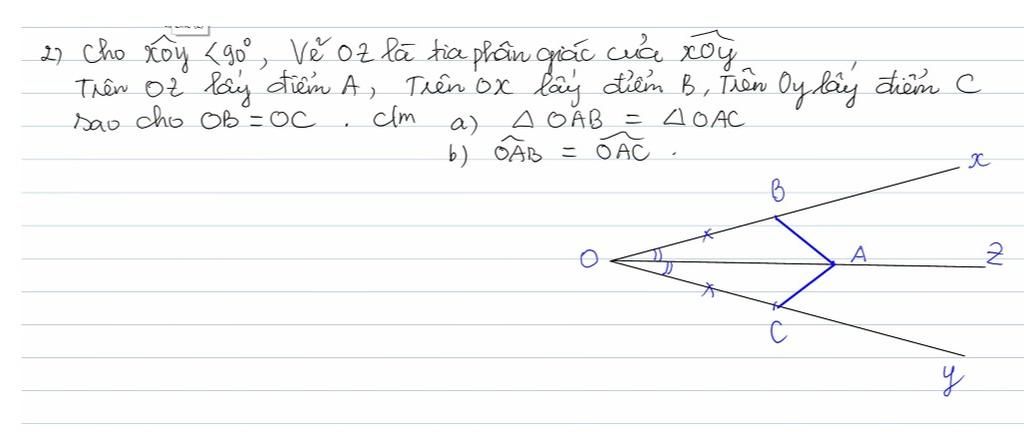 2) Cho xÔy < 90°, Vẽ OZ là tia phân giác của xÔy
Trên OZ lấy điểm A, Trên OX lấy điểm B, Trên Oy lấy điểm C
sao cho OB = OC. C/m a) △OAB = △OAC
b) OÂB = OÂC.
x
B
O
A
Z
C
y